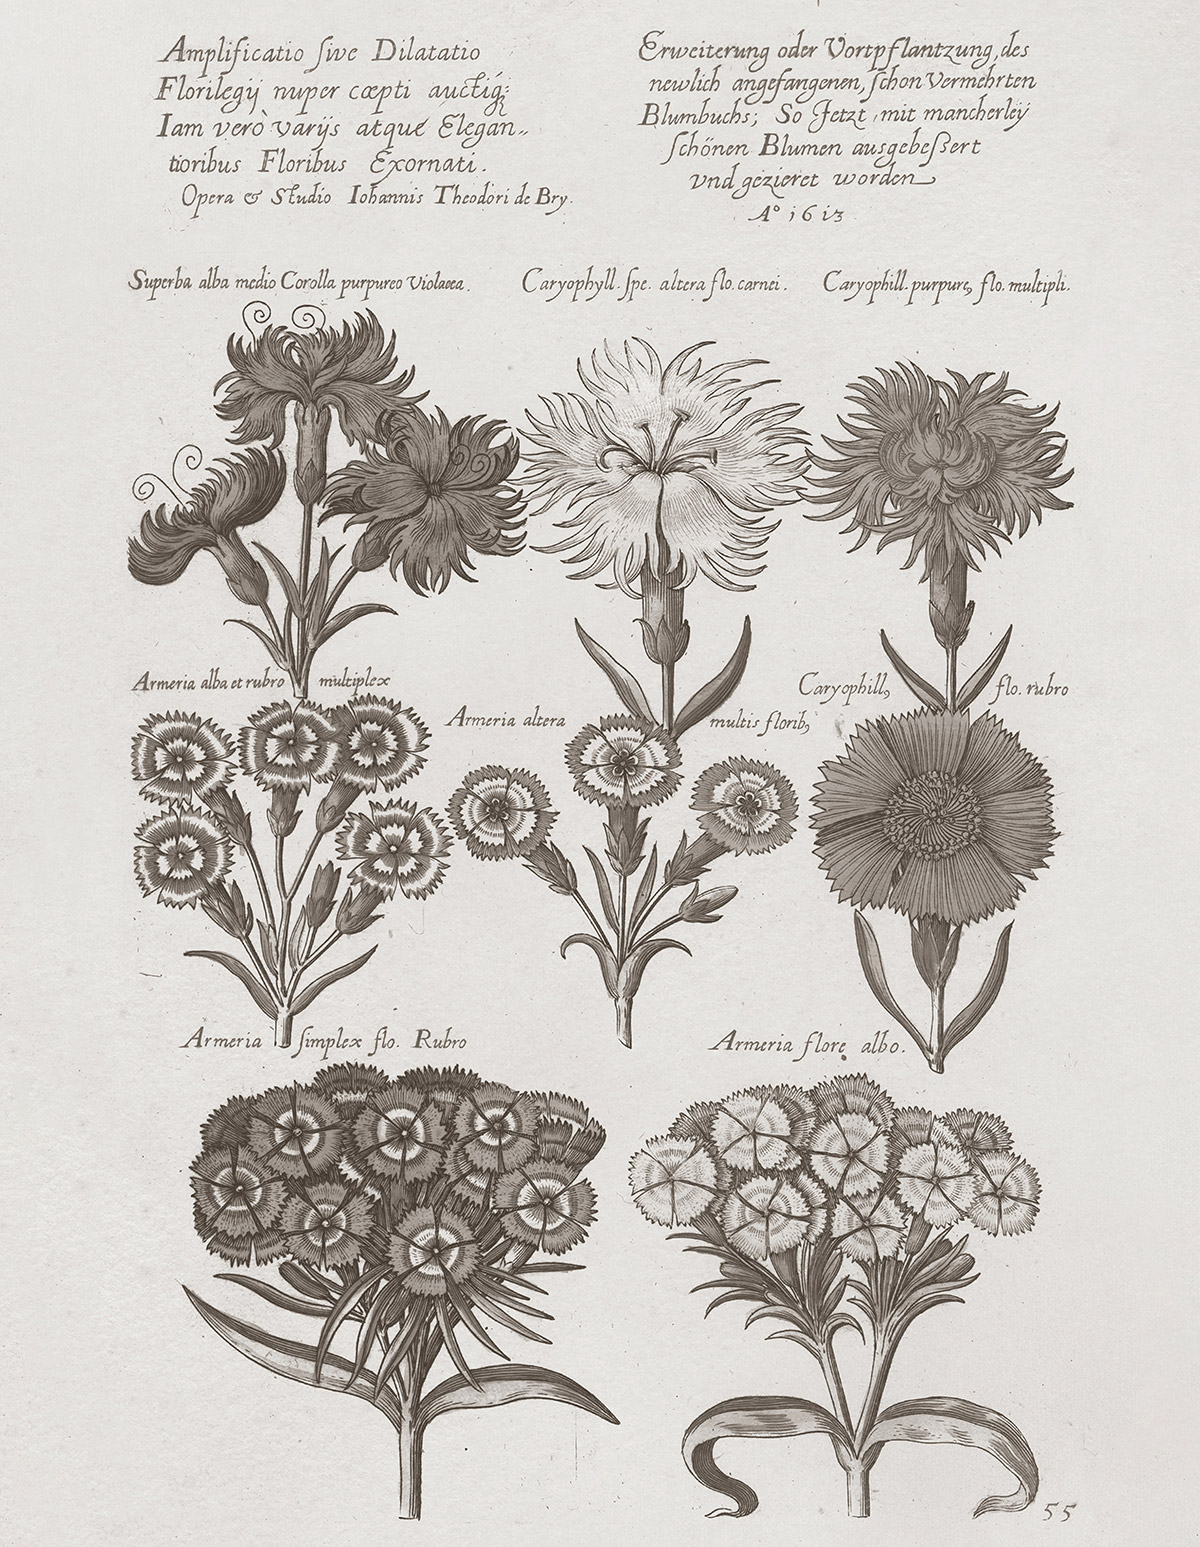 Amplificatio ſive Dilatatio
Florilegÿ nuper cœpti auctiq;
Iam verò varÿs atque Elegan„
tioribus Floribus Exornati.
Opera & Studio Iohannis Theodori de Bry.
Erweiterung oder Vortpflantzung, des
newlich angefangenen, ſchon Vermehrten
Blumbuchs; So Jetzt, mit mancherleÿ
ſchönen Blumen ausgebeſſert
vnd gezieret worden
Aº 1613
Superba alba medio Corolla purpureo Violacea.
Caryophyll. ſpe. altera flo. carnei.
Caryophill. purpure, flo. multipli.
Armeria alba et rubro multiplex
Armeria altera multis florib,
Caryophill, flo. rubro
Armeria ſimplex flo. Rubro
Armeria flore albo.
55